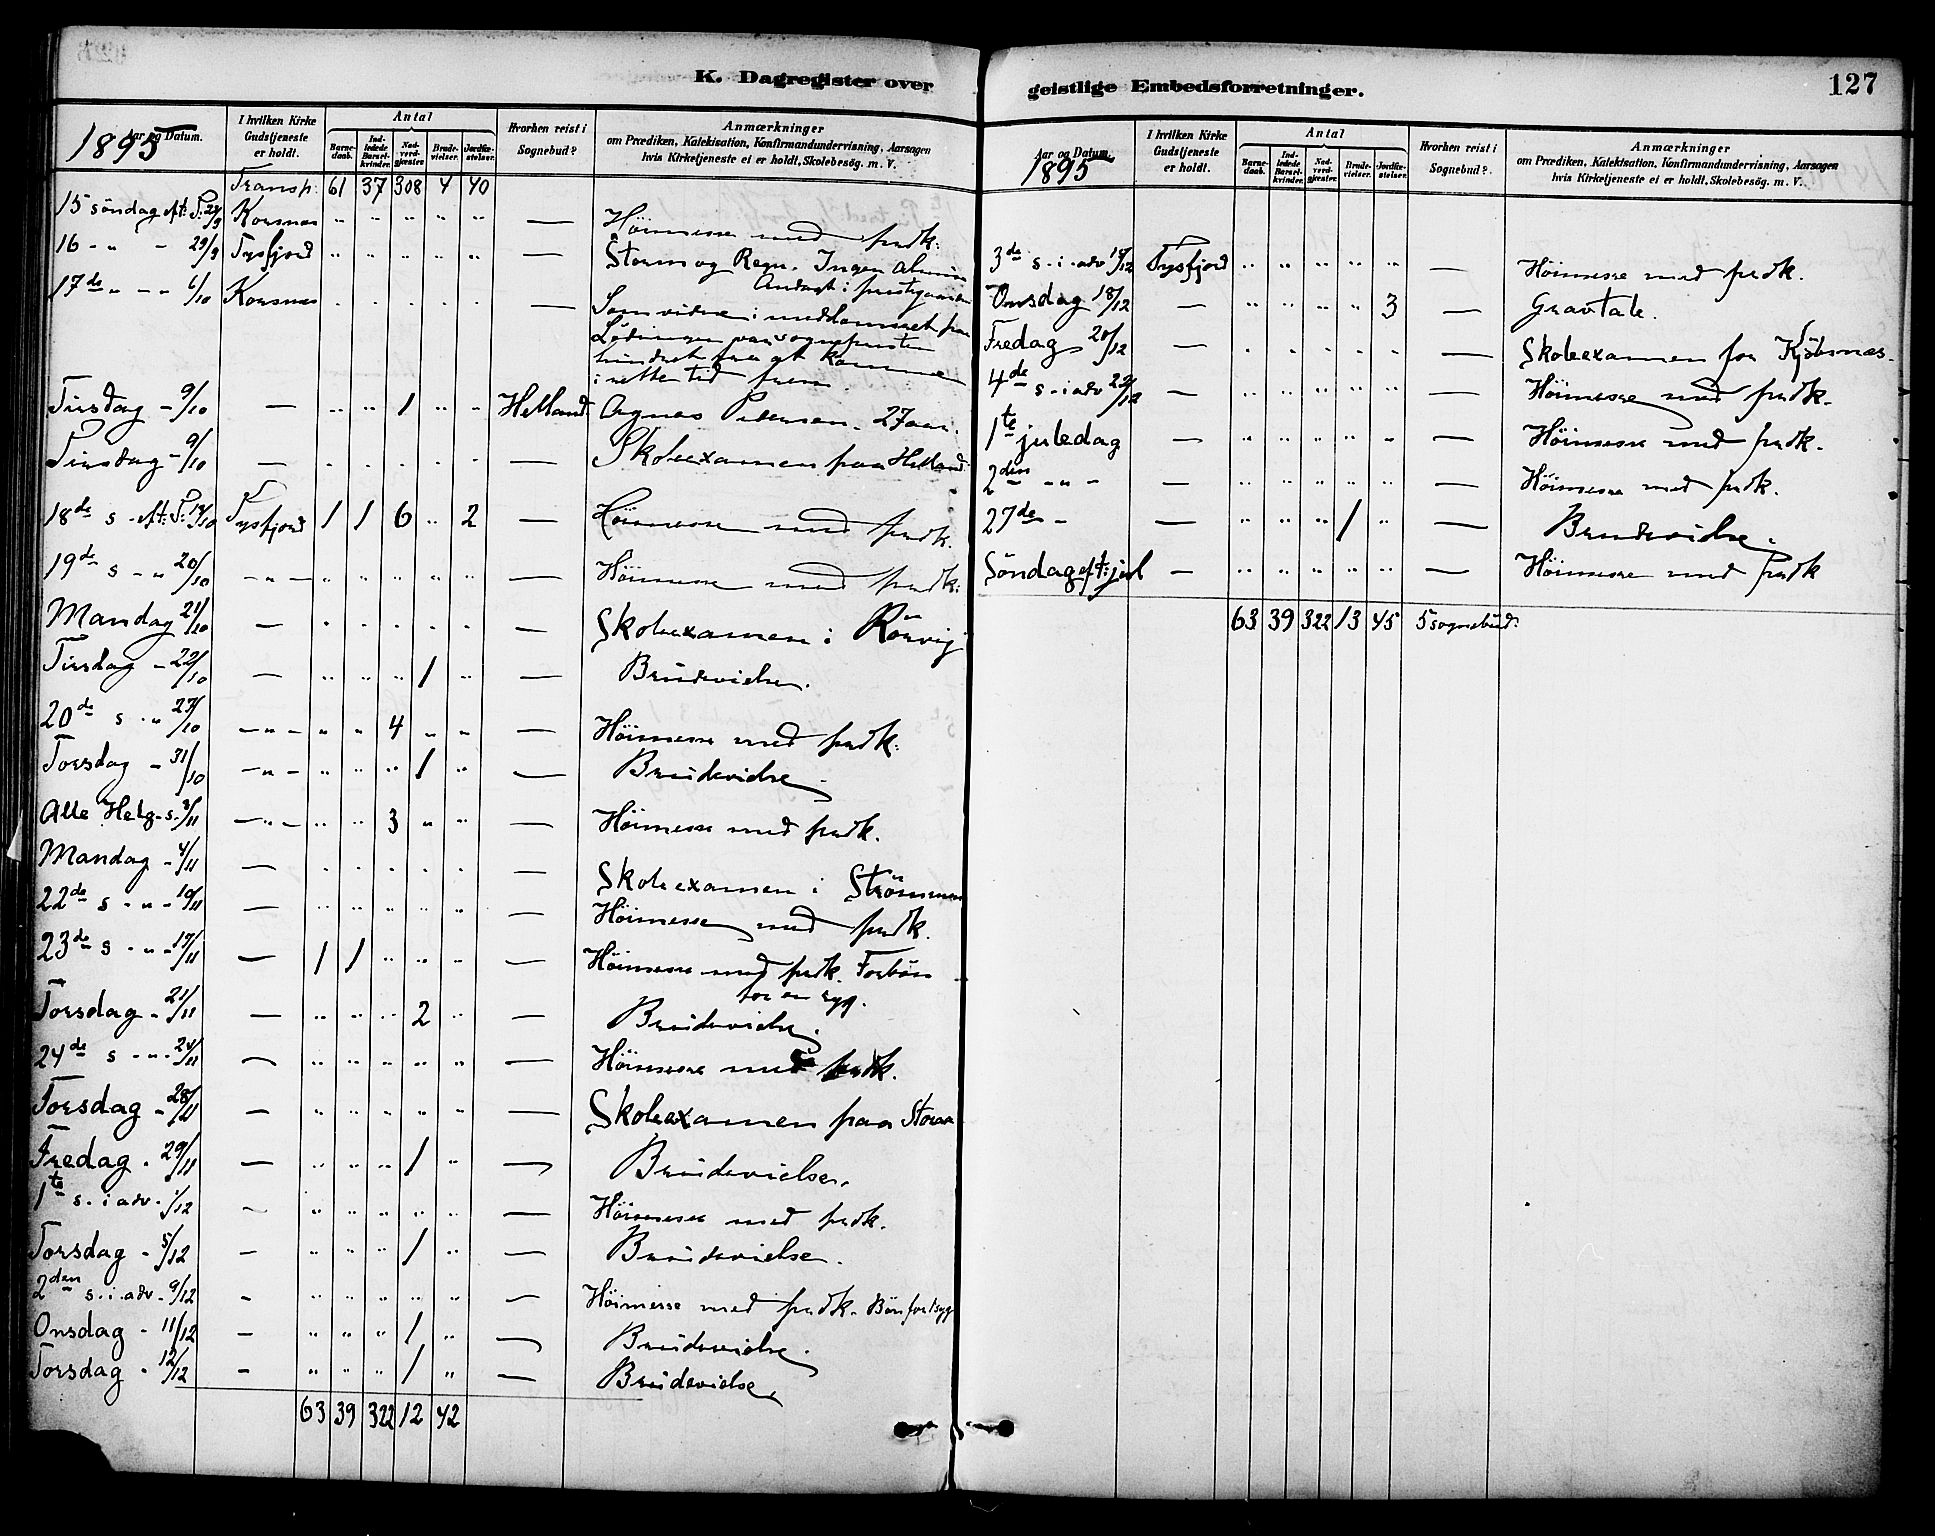 K. Dagregister over
1895 Aar og Datum.
I hvilken Kirke Gudstjeneste er holdt.
Antal
Barnedaab. Indledede Barselkvinder. Nadverdgjæster. Brudevielser. Jordfæstelser.
Hvorhen reist i Sognebud?
Anmærkninger
om Prædiken, Katekisation, Konfirmandundervisning, Aarsagen
hvis Kirketjeneste ei er holdt, Skolebesög. m. V.
Transp: 61 37 308 4 40
15 söndag eft: P: 22/9 Korsnæs " " " " " — Höimesse med prædk:
16 - " - 29/9 Tysfjord " " " " " — Storm og Regn. Ingen almue
Andagt i prestegaarden
17de " - - 6/10 Korsnæs " " " " " — Som vidne i meddomsret paa
Lödingen var sognepresten
hindret fra at komme
i rette tid frem.
Tirsdag - 9/10 — " " 1 " " Helland Agnes Petersen. 27 aar.
Tirsdag - 9/10 — " " " " " — Skoleexamen paa Helland
18de s - eft: P: 14/10 Tysfjord 1 1 6 " 2 — Höimesse med prædk.
19de s - " 20/10 - " - " " " " " — Höimesse med prædk:
Mandag 21/10 — " " " " " — Skoleexamen i Rörvig
Tirsdag - 22/10 — " " " 1 " — Brudevielse.
20de s - " 27/10 - " - " " 4 " " — Höimesse med prædk:
Torsdag - 31/10 - " - " " " 1 " — Brudevielse.
Alle Helg - s - 3/11 - " - " " 3 " " — Höimesse med prædk.
Mandag - 4/11 — " " " " " — Skoleexamen i Strömmen
22de s - " - 10/11 — " " " " " — Höimesse med prædk.
23de s - " - 17/11 — 1 1 " " " — Höimesse med prædk. Forbön
for en syg.
Torsdag - 21/11 — " " " 2 " — Brudevielse.
24de s - " - 24/11 — " " " " " — Höimesse med prædk.
Torsdag - 28/11 — " " " " " — Skoleexamen paa Storaa
Fredag - 29/11 — " " " 1 " — Brudevielse.
1te s - i adv - 1/12 — " " " " " — Höimesse med prædk.
Torsdag - 5/12 — " " " 1 " — Brudevielse.
2den s - i adv - 9/12 — " " " " " — Höimesse med prædk. Bön for 1 syg
Onsdag - 11/12 — " " " 1 " — Brudevielse.
Torsdag - 12/12 — " " " 1 " — Brudevielse.
63 39 322 12 42
geistlige Embedsforretninger.
127
Aar og Datum. 1895
I hvilken Kirke Gudstjeneste er holdt.
Antal
Barnedaab. Indledede Barselkvinder. Nadverdgjæster. Brudevielser. Jordfæstelser.
Hvorhen reist i Sognebud?
Anmærkninger
om Prædiken, Katekisation, Konfirmandundervisning, Aarsagen
hvis Kirketjeneste ei er holdt, Skolebesög. m. V.
3de s - i - adv 15/12 Tysfjord " " " " " — Höimesse med prædk.
Onsdag 18/12 — " " " " 3 — Gravtale.
Fredag 20/12 — " " " " " — Skoleexamen for Kjöbsnæs.
4de s - i adv 22/12 — " " " " " — Höimesse med prædk.
1te juledag — " " " " " — Höimesse med prædk.
2den - " - — " " " " " — Höimesse med prædk.
27de - — " " " 1 " — Brudevielse.
Söndag eft: jul — " " " " " — Höimesse med prædk
63 39 322 13 45 5 sognebud.